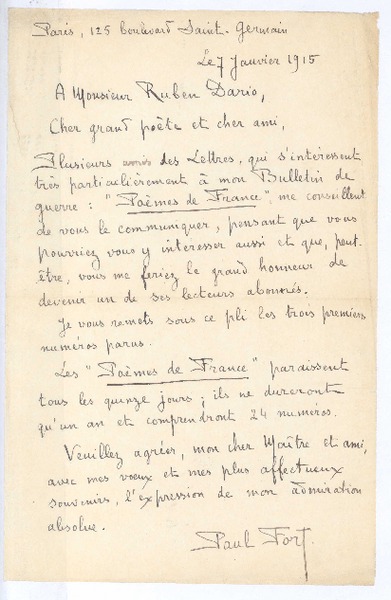 Paris, 125 boulevard Saint-Germain
Le 7 Janvier 1915
A Monsieur Ruben Dario,
Cher grand poète et cher ami,
Plusieurs amis des Lettres, qui s'intéressent
très particulièrement à mon Bulletin de
guerre : "Poèmes de France", me conseillent
de vous le communiquer, pensant que vous
pourriez vous y intéresser aussi et que, peut-
être, vous me feriez le grand honneur de
devenir un de ses lecteurs abonnés.
Je vous remets sous ce pli les trois premiers
numéros parus.
Les "Poèmes de France" paraissent
tous les quinze jours ; ils ne dureront
qu'un an et comprendront 24 numéros.
Veuillez agréer, mon cher Maître et ami,
avec mes vœux et mes plus affectueux
souvenirs, l'expression de mon admiration
absolue.
Paul Fort.